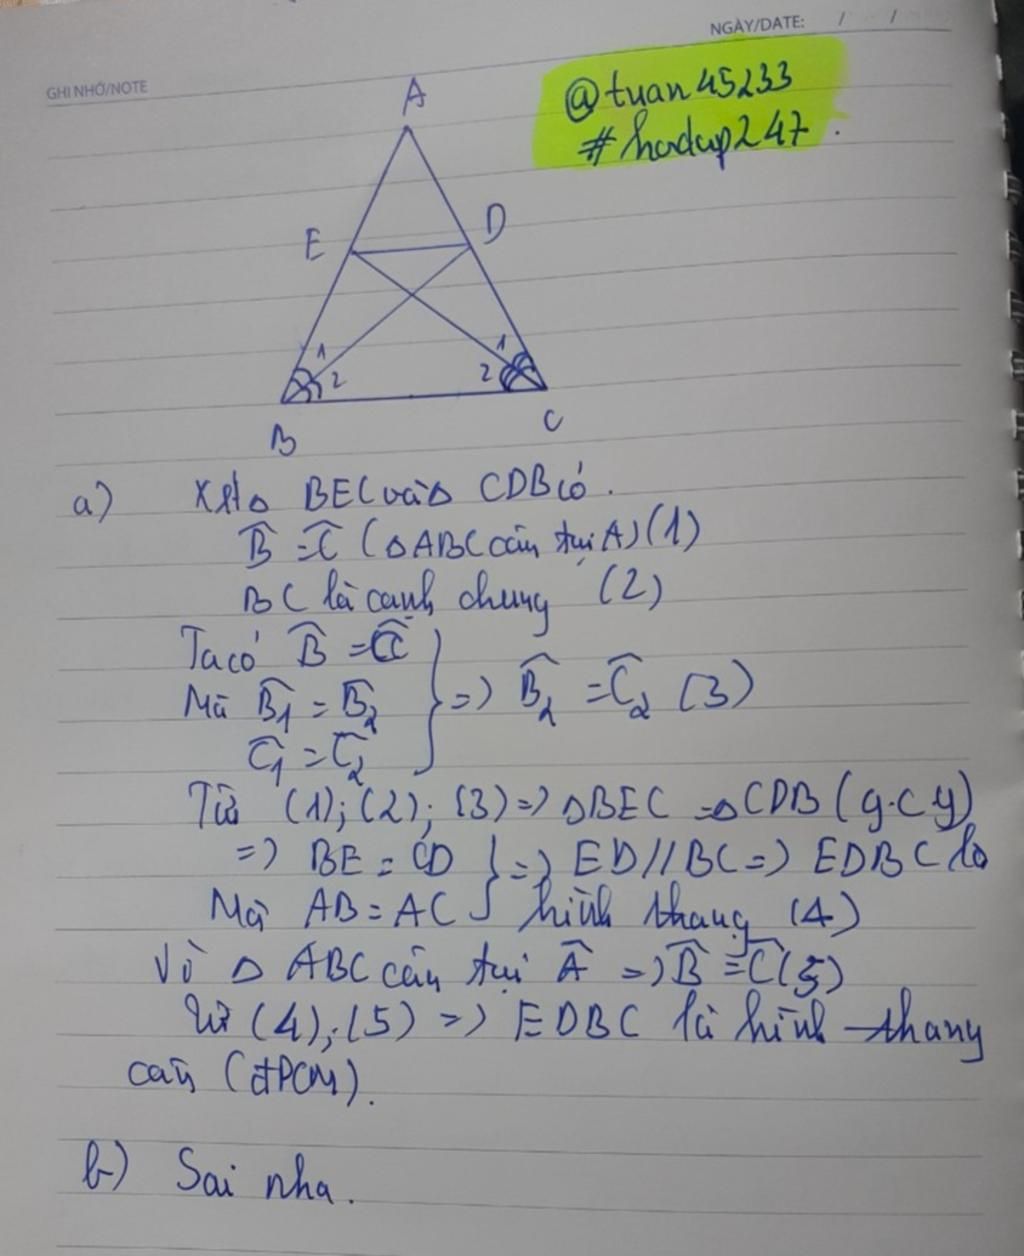 NGÀY/DATE: / /
GHI NHỚ/NOTE
@tuan45233
#hoidap247.
A
E
D
1
2
1
2
B
C
a) Xét Δ BEC và Δ CDB có.
B̂ = Ĉ (Δ ABC cân tại A) (1)
BC là cạnh chung (2)
Ta có B̂ = Ĉ
Mà B̂1 = B̂2 } => B̂2 = Ĉ2 (3)
Ĉ1 = Ĉ2
Từ (1); (2); (3) => ΔBEC = ΔCDB (g.c.g)
=> BE = CD } => ED // BC => EDBC là
Mà AB = AC hình thang (4)
Vì Δ ABC cân tại Â => B̂ = Ĉ (5)
Từ (4); (5) => EDBC là hình thang
cân (đPCM).
b) Sai nha.